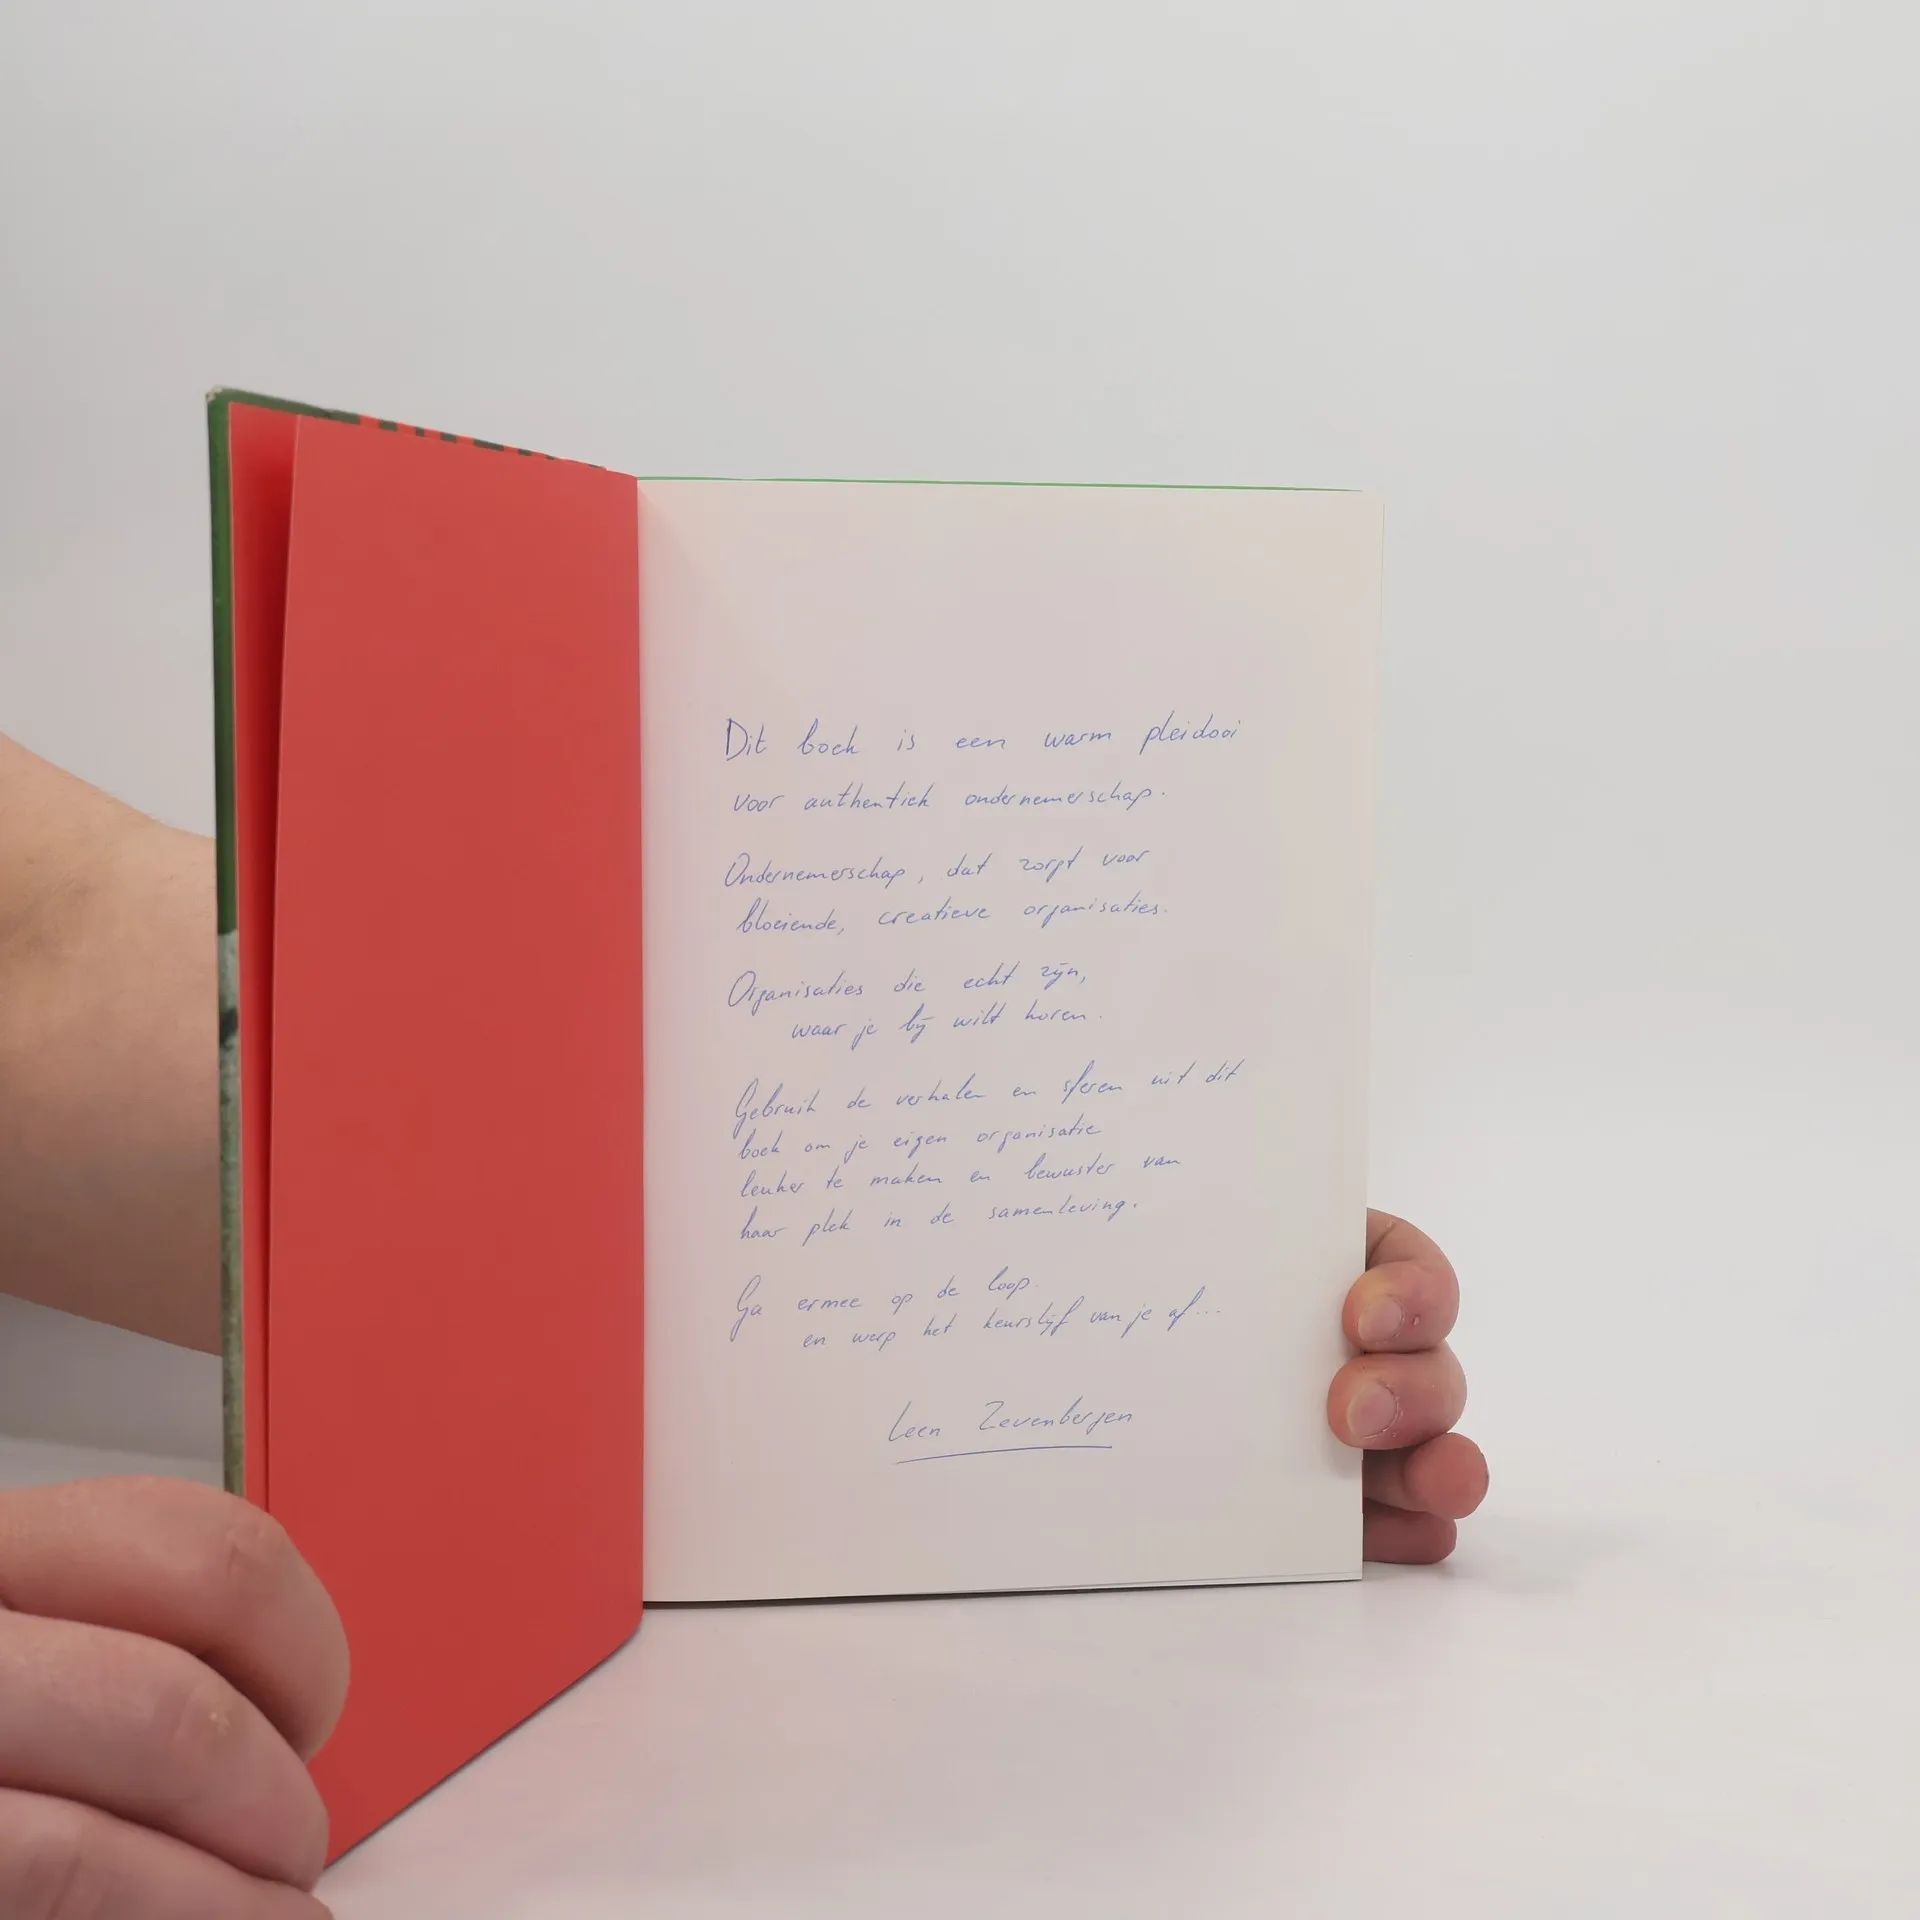 Dit boek is een warm pleidooi
voor authentiek ondernemerschap.
Ondernemerschap, dat zorgt voor
bloeiende, creatieve organisaties.
Organisaties die echt zijn,
waar je bij wilt horen.
Gebruik de verhalen en sferen uit dit
boek om je eigen organisatie
leuker te maken en bewuster van
haar plek in de samenleving.
Ga ermee op de loop.
en werp het keurslijf van je af...
Leen Zevenbergen